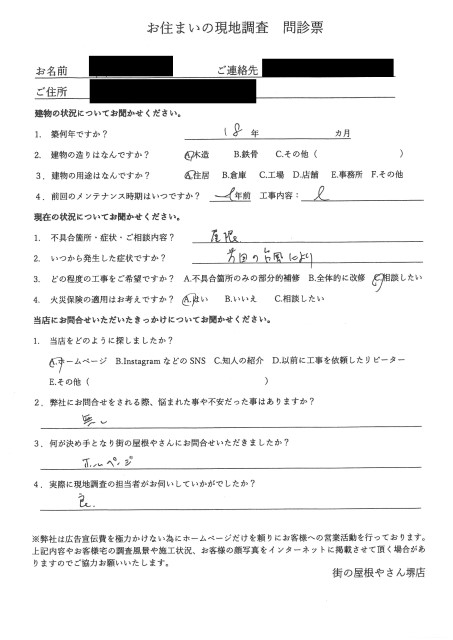 お住まいの現地調査 問診票
お名前 ご連絡先
ご住所
建物の状況についてお聞かせください。
1. 築何年ですか? 18 年 カ月
2. 建物の造りはなんですか? A.木造 B.鉄骨 C.その他( )
3. 建物の用途はなんですか? A.住居 B.倉庫 C.工場 D.店舗 E.事務所 F.その他
4. 前回のメンテナンス時期はいつですか? 年前 工事内容:
現在の状況についてお聞かせください。
1. 不具合箇所・症状・ご相談内容? 屋根
2. いつから発生した症状ですか? の台風により
3. どの程度の工事をご希望ですか? A.不具合箇所のみの部分的補修 B.全体的に改修 C.相談したい
4. 火災保険の適用はお考えですか? A.はい B.いいえ C.相談したい
当店にお問合せいただいたきっかけについてお聞かせください。
1. 当店をどのように探しましたか?
A.ホームページ B.InstagramなどのSNS C.知人の紹介 D.以前に工事を依頼したリピーター
E.その他( )
2. 弊社にお問合せをされる際、悩まれた事や不安だった事はありますか?
無し
3. 何が決め手となり街の屋根やさんにお問合せいただきましたか?
ホームページ
4. 実際に現地調査の担当者がお伺いしていかがでしたか?
良
※弊社は広告宣伝費を極力かけない為にホームページだけを頼りにお客様への営業活動を行っております。
上記内容やお客様宅の調査風景や施工状況、お客様の顔写真をインターネットに掲載させて頂く場合があ
りますのでご協力お願いいたします。
街の屋根やさん堺店